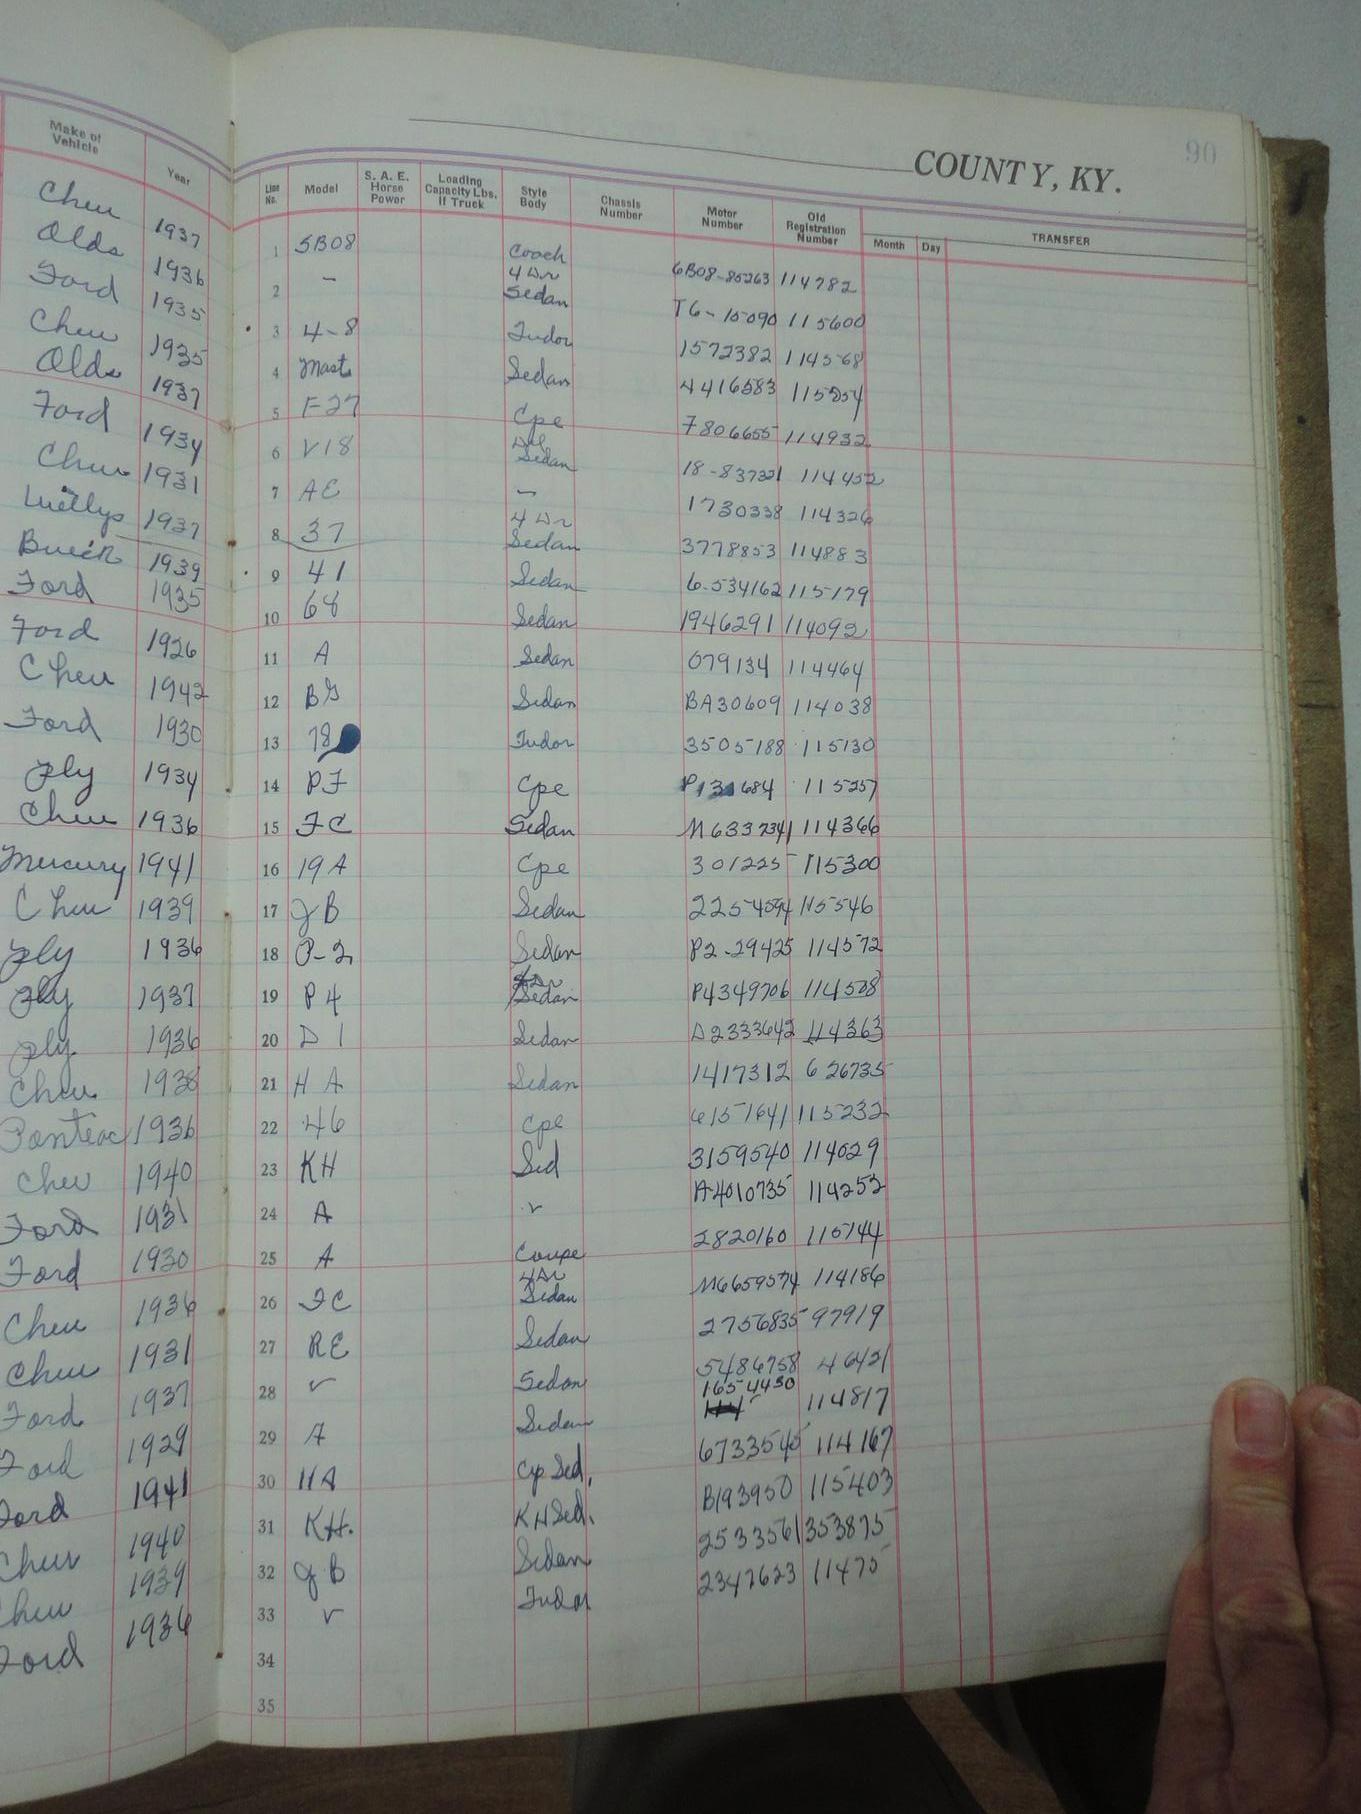 90
COUNTY, KY.
Make of Vehicle Year Line No. Model S. A. E. Horse Power Loading Capacity Lbs. If Truck Style Body Chassis Number Motor Number Old Registration Number Month Day TRANSFER
Chev 1937 1 5B08 Coach 6B08-85263 114782
Olds 1936 2 - 4 Dr Sedan T6-15090 115600
Ford 1935 3 4-8 Tudor 1572382 114568
Chev 1935 4 Mast Sedan 4416583
Olds 1937 5 F-27 Cpe 7806655 114932
Ford 1934 6 V18 Sedan 114452
Chev 1931 7 AE - 1730338 114326
Willys 1937 8 37 4 Dr Sedan 3778853 114883
Buick 1939 9 41 Sedan 6-534162 115179
Ford 1935 10 68 Sedan 1946291 114092
Ford 1926 11 A Sedan 079134 114464
Chev 1942 12 BG Sedan BA30609 114038
Ford 1930 13 78 Tudor 3505188 115130
Ply 1934 14 PF Cpe 115257
Chev 1936 15 FC Sedan 114366
Mercury 1941 16 19A Cpe 301225 115300
Chev 1939 17 JB Sedan 115546
Ply 1936 18 P-2 Sedan P2-29425 114572
Ply 1937 19 P4 Sedan P4349706 114508
Ply 1936 20 D 1 Sedan D2333642 114363
Chev 1938 21 H A Sedan 1417312 626735
Pontiac 1936 22 46 Cpe 115232
Chev 1940 23 KH Sed 3159540 114029
Ford 1931 24 A v A4010735 114252
Ford 1930 25 A Coupe 2820160 115144
Chev 1936 26 FC 4 Dr Sedan M6659574 114186
Chev 1931 27 RE Sedan 2756835 97919
Ford 1937 28 v Sedan 5486758 46421
Ford 1929 29 A Sedan 1654430 114817
Ford 1941 30 11A Cp Sed. 114167
Chev 1940 31 KH. KH Sed. B193950 115403
Chev 1939 32 JB Sedan 2533561 353875
Ford 1936 33 v Tudor 2347623 11475
34
35